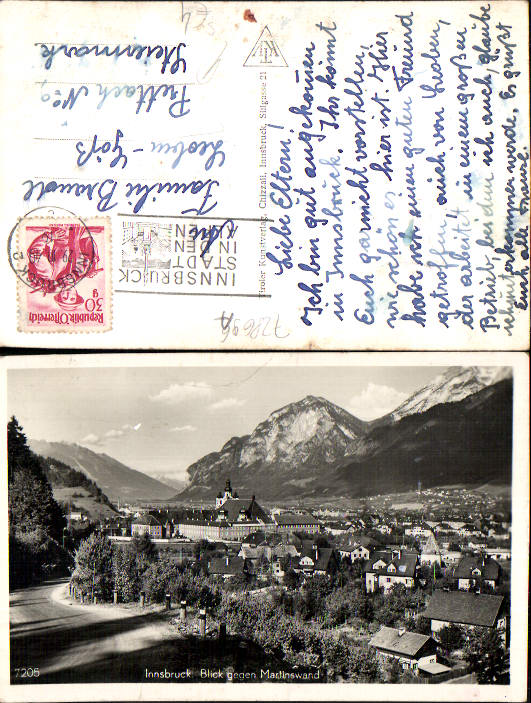 Liebe Eltern,
Ich bin gut angekommen
in Innsbruck. Ihr könnt
Euch garnicht vorstellen,
wie schön es hier ist. Hier
habe ich einen guten Freund
getroffen, auch von Leoben,
der arbeitet in einem großen
Betrieb, bei dem ich auch, glaube
ich, unterkommen werde. Es grüßt
Tiroler Kunstverlag Chizzali, Innsbruck, Sillgasse 21
Familie Brandl
Leoben-Göß
Prettach No 9
Steiermark
INNSBRUCK
STADT
IN DEN
INNSBRUCK
30 g
Republik Österreich
7205
Innsbruck. Blick gegen Martinswand